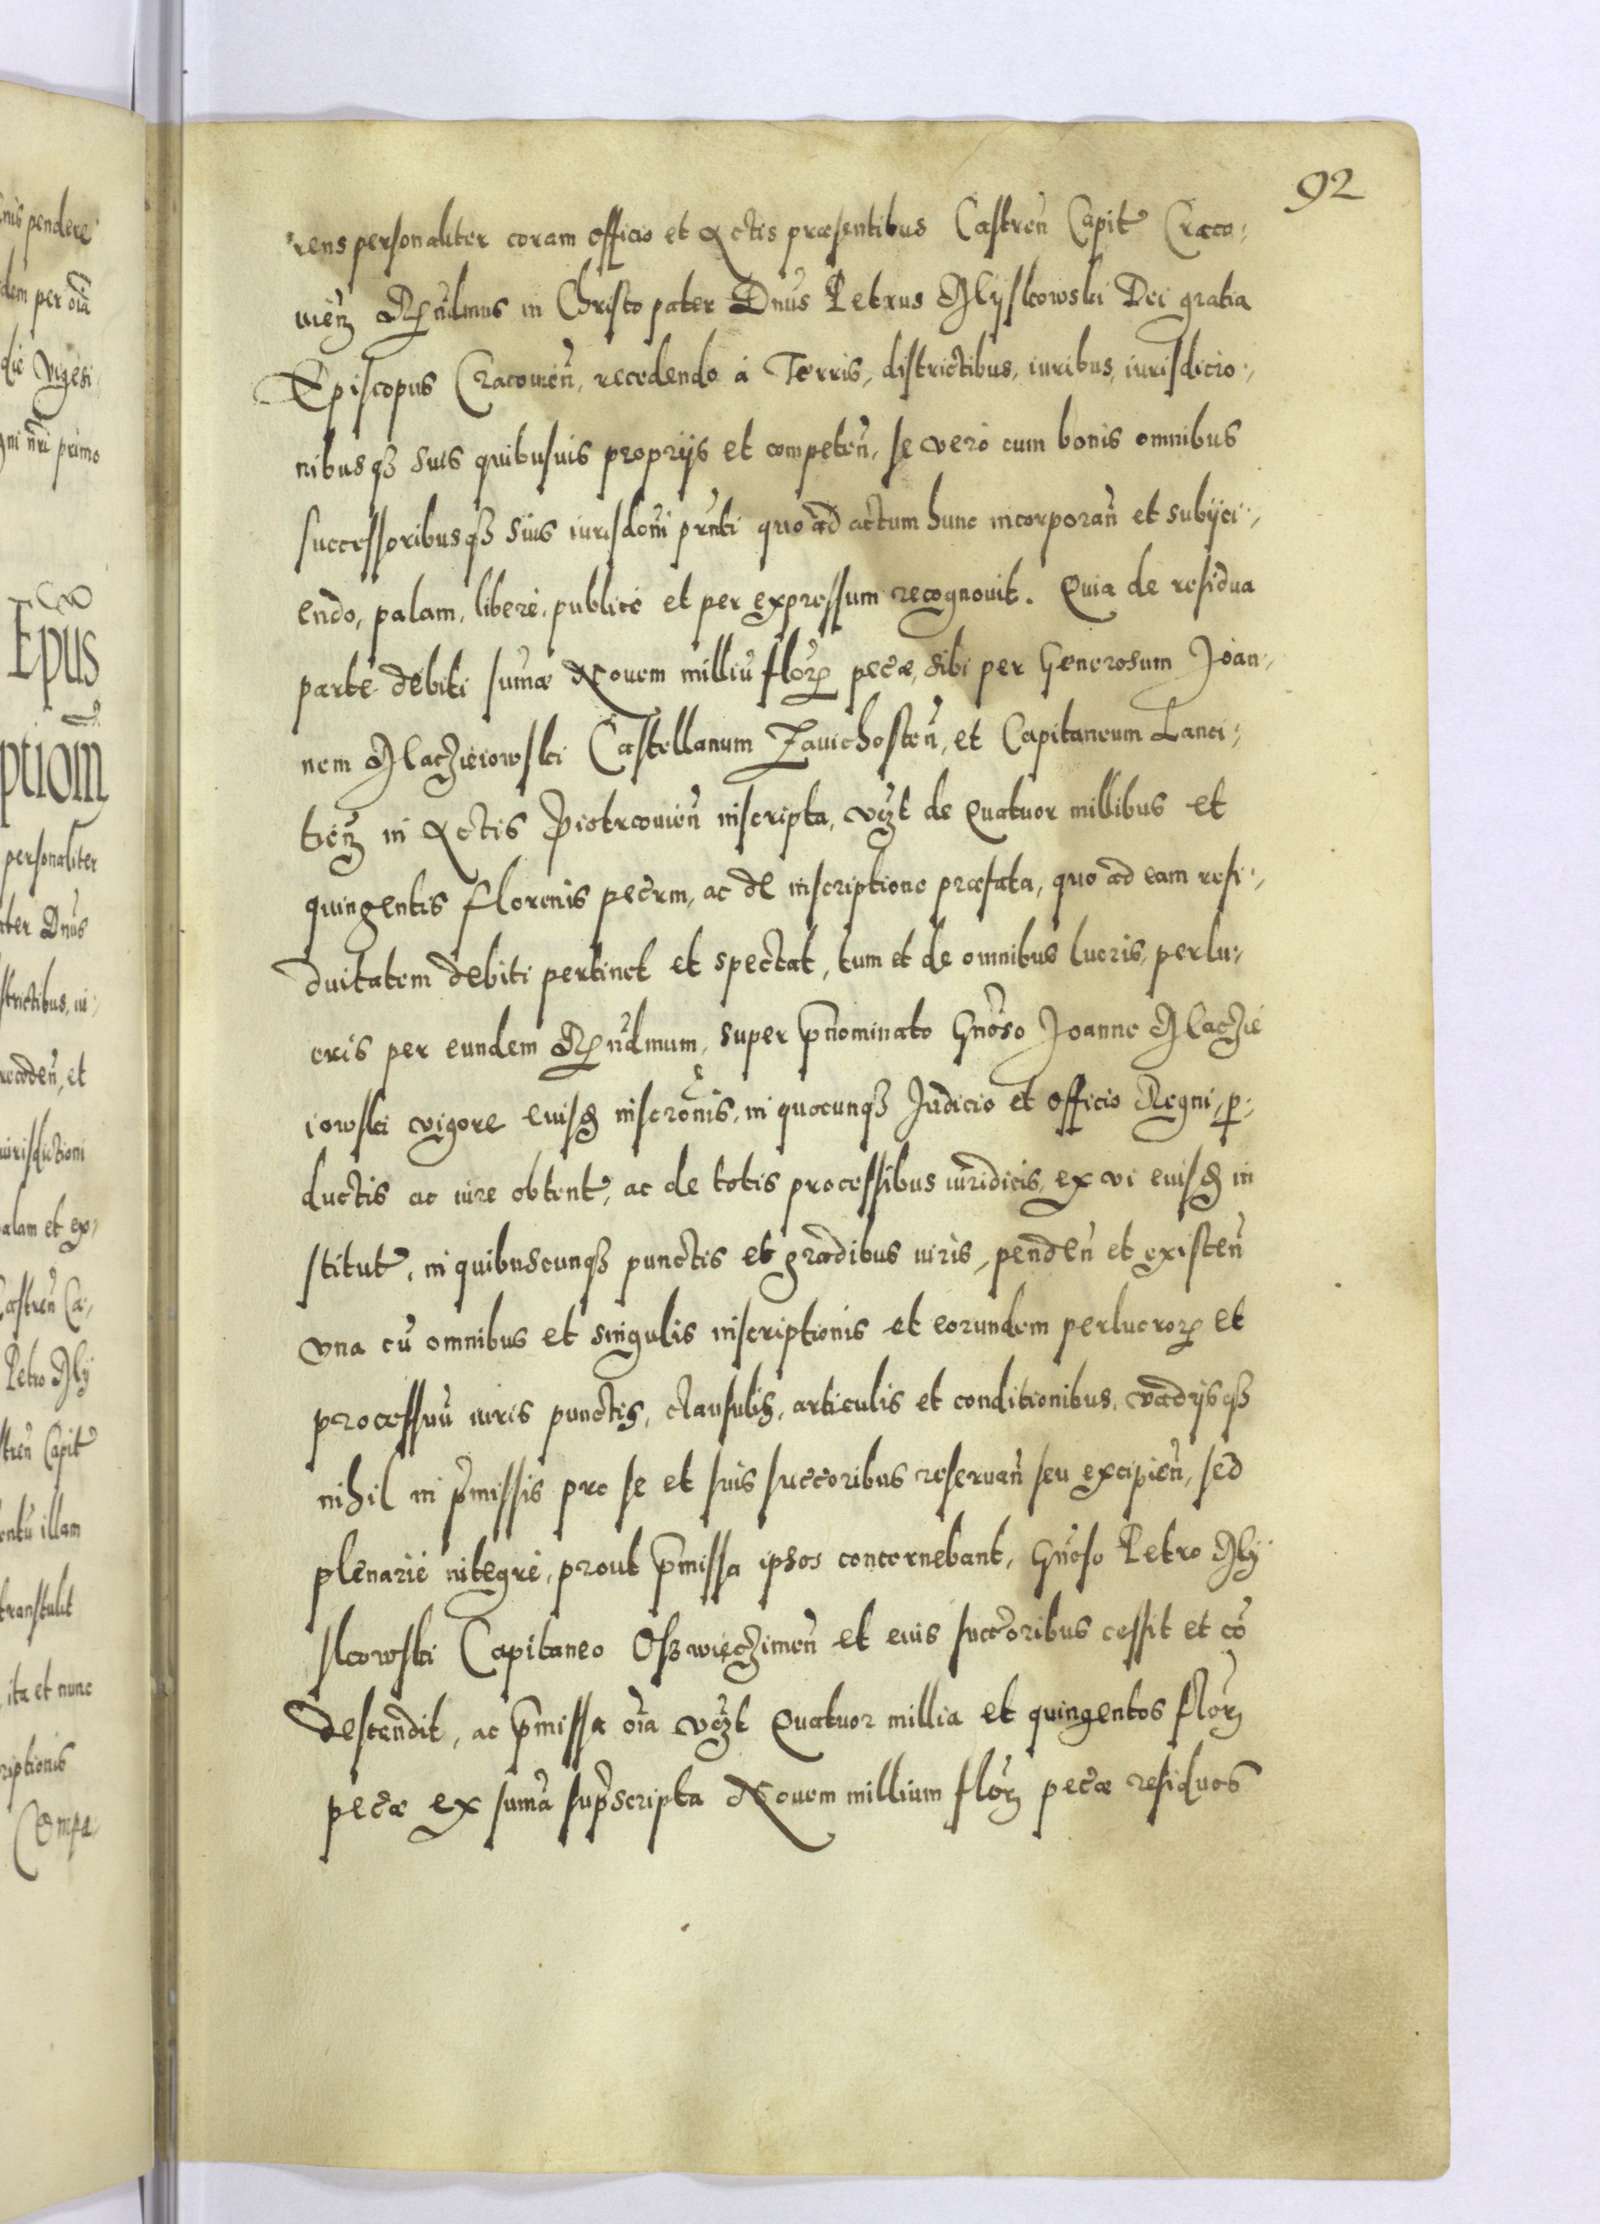 nis pendere
dem per oīa
die Vigesi
ni nr̄i primo
Epus
ptiom
personaliter
ater Dnus
strictibus, iu:
recedeñ, et
iurisdictioni
alam et ex,
Castreñ Ca,
Petro My
streñ Capit
entū illam
transtulit
ita et nunc
riptionis
Compa,
92
rens personaliter coram officio et Actis præsentibus Castreñ Capit Craco,
uieñ Rñdmus in Christo pater Dnus Petrus Myskowski Dei gratia
Episcopus Cracouieñ, recedendo á Terris, districtibus, iuribus, iurisdicio,
nibusq suis quibusuis proprijs et competeñ, se vero cum bonis omnibus
successoribusq suis iurisdoni prnti quo ad actum hunc incorporañ et subijci,
endo, palam, liberè, publicè et per expressum recognouit. Quia de residua
parte debiti sumæ Nouem milliū flor pecæ, sibi per Generosum Joan,
nem Maczieiowski Castellanum Zauichosteñ, et Capitaneum Lanci,
tieñ in Actis Piotrcouieñ inscripta, vczt de Quatuor millibus et
quingentis florenis pecrm, ac de inscriptione præfata, quo ad eam resi,
duitatem debiti pertinet et spectat, tum et de omnibus lucris, perlu,
cris per eundem Rñdmum, super pnominato Gnoso Joanne Maczie
iowski vigore euisd inscronis, in quocunq Judicio et officio Regni, p,
ductis ac iure obtent, ac de totis processibus iuridicis, ex vi euisd in
stitut, in quibuscunq punctis et gradibus iuris, pendeñ et existeñ
vna cū omnibus et singulis inscriptionis et eorundem perlucror et
processuū iuris punctis, clausulis, articulis et conditionibus, vadijsq
nihil in pmissis pro se et suis succoribus reseruañ seu excipieñ, sed
plenariè integrè, prout pmissa ipsos concernebant, Gnoso Petro My
skowski Capitaneo Oszwięczimeñ et euis succoribus cessit et cō
descendit, ac pmissa oīa vczt Quatuor millia et quingentos flor
pecæ ex suma suprscripta Nouem millium flor pecæ residuos